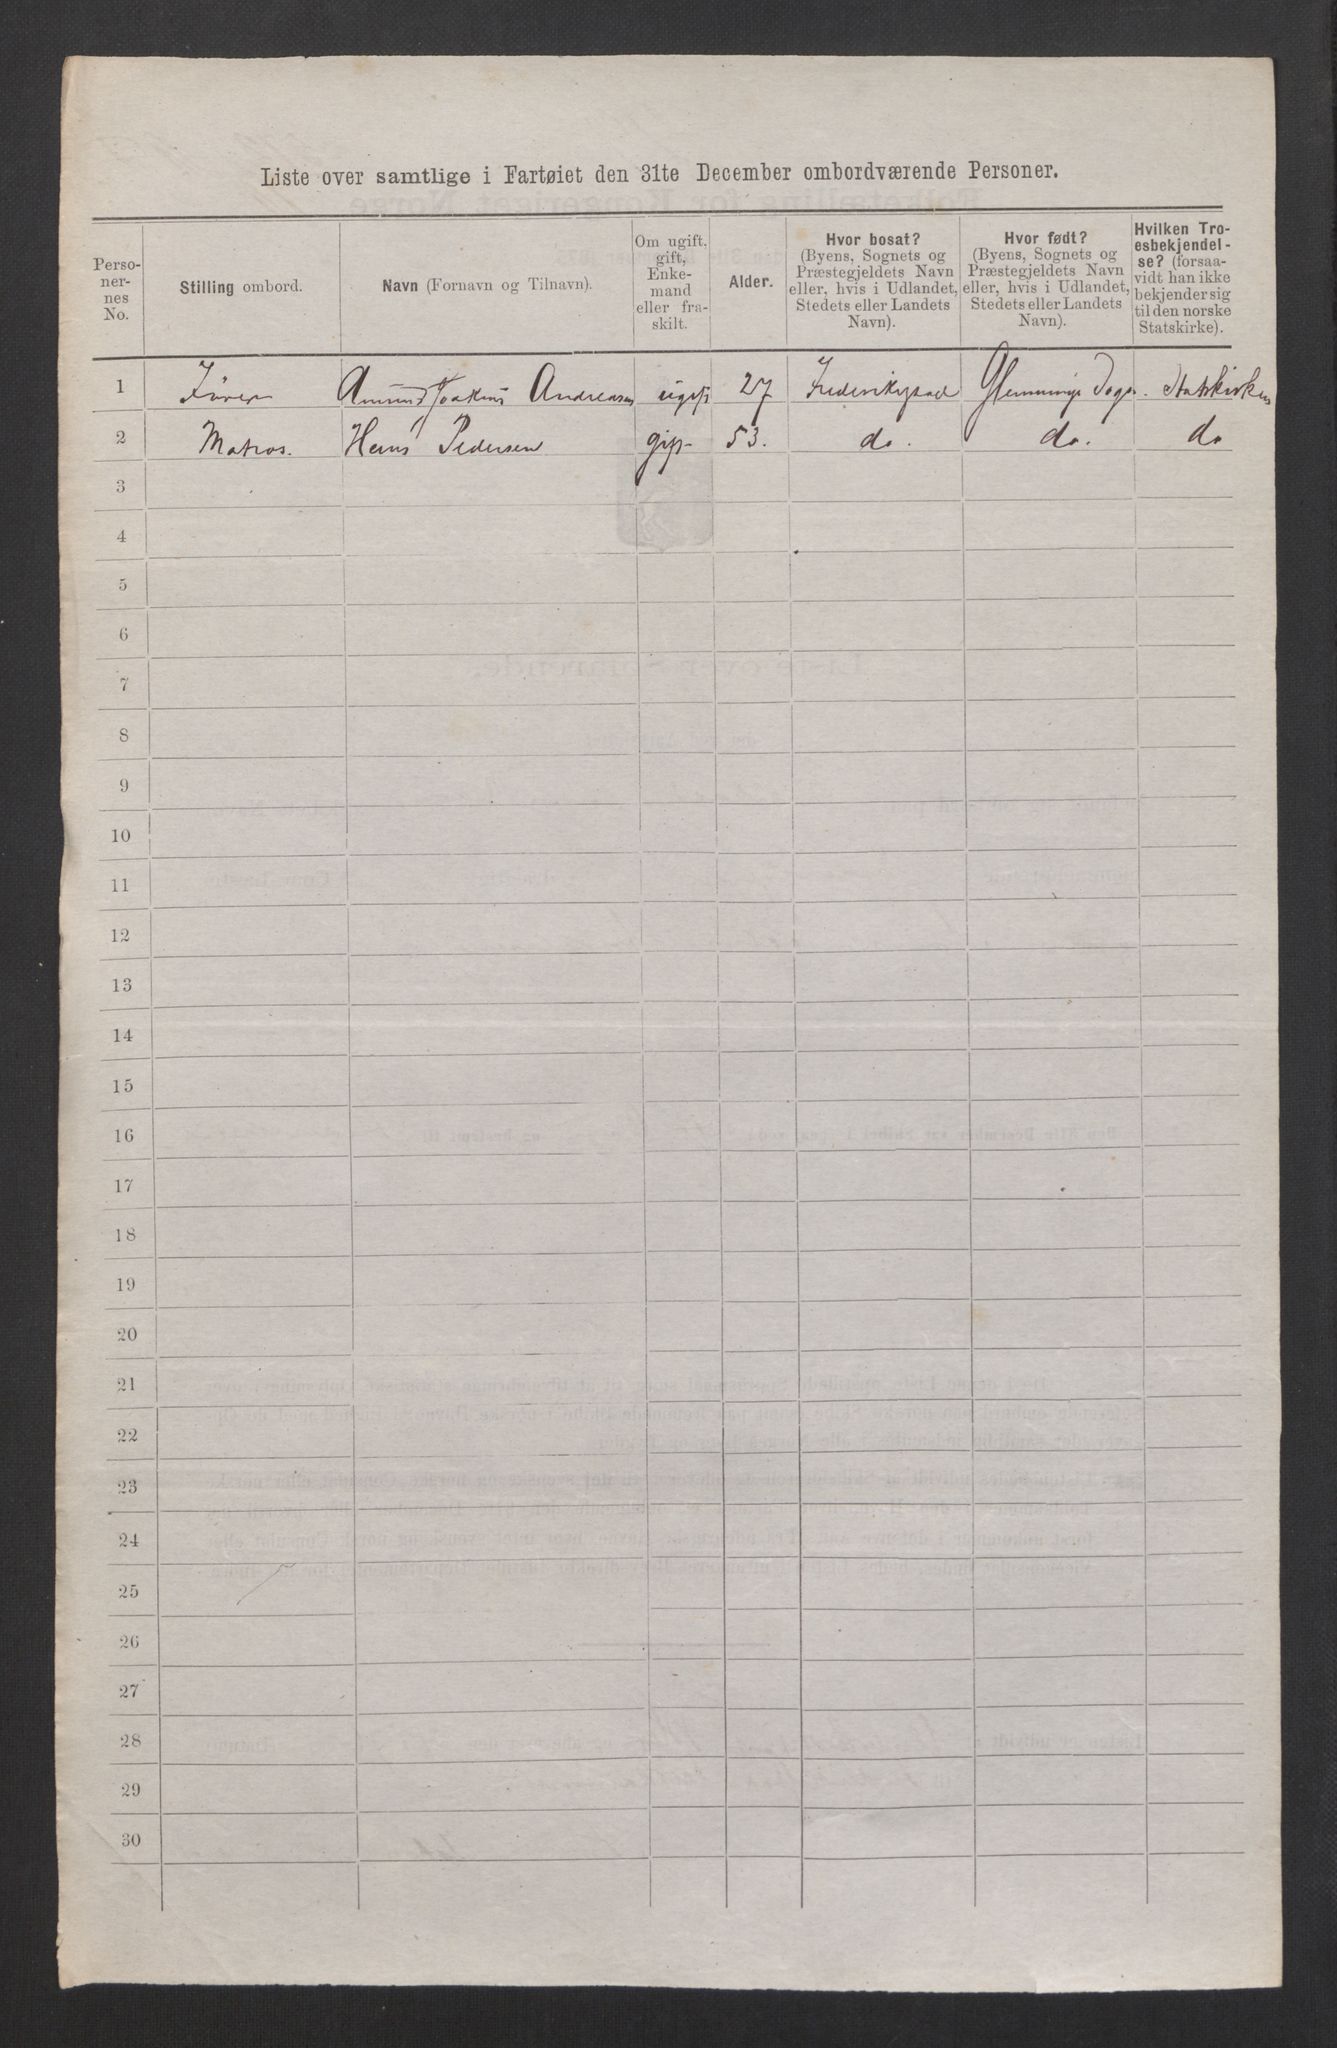 Liste over samtlige i Fartøiet den 31te December ombordværende Personer.
Perso-
ner-
nes
No.
Stilling ombord.
Navn (Fornavn og Tilnavn).
Om ugift,
gift,
Enke-
mand
eller fra-
skilt.
Alder.
Hvor bosat?
(Byens, Sognets og
Præstegjeldets Navn
eller, hvis i Udlandet,
Stedets eller Landets
Navn).
Hvor født?
(Byens, Sognets og
Præstegjeldets Navn
eller, hvis i Udlandet,
Stedets eller Landets
Navn).
Hvilken Tro-
esbekjendel-
se? (forsaa-
vidt han ikke
bekjender sig
til den norske
Statskirke).
1 Förer Amund Joakim Andreasen ugift 27 Frederikstad Glemminge Sogn. Statskirken
2 Matros. Hans Pedersen gift 53. do. do. do
3
4
5
6
7
8
9
10
11
12
13
14
15
16
17
18
19
20
21
22
23
24
25
26
27
28
29
30